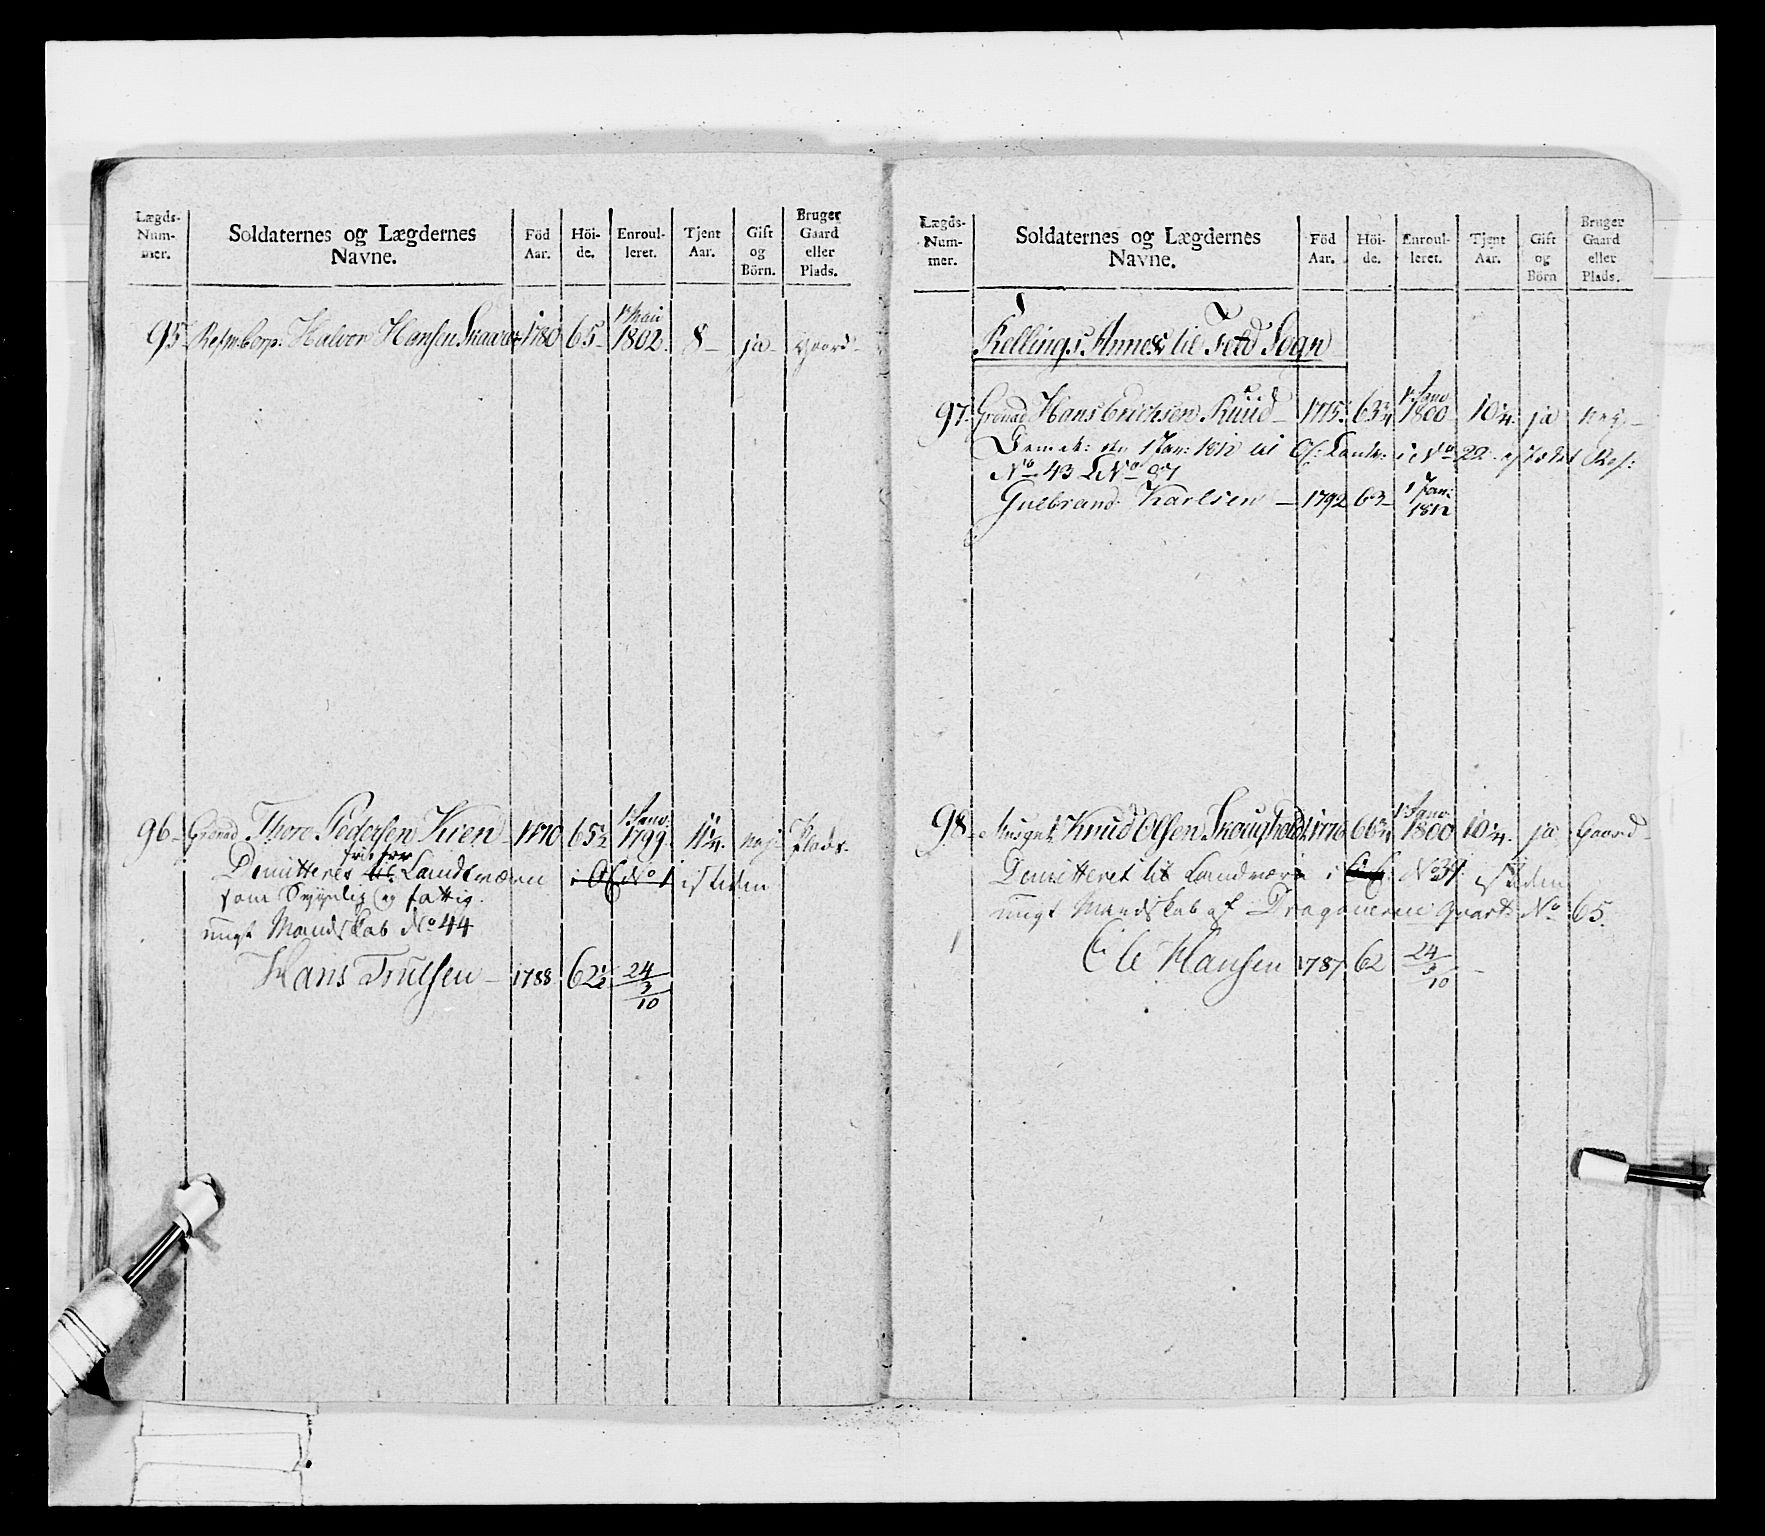 Lægds-
Num-
mer.
Soldaternes og Lægdernes
Navne.
Föd
Aar.
Höi-
de.
Enroul-
leret.
Tjent
Aar.
Gift
og
Börn.
Bruger
Gaard
eller
Plads.
95 Halvor Hansen 1780 65 1802 8 ja Gaard
96 Grenad Thore Pedersen Kien 1770 65½ 1 Janv: 1799 11¼ nej Plads
fri for
Demitteret til Landeværn i No 1 isteden
som Svagelig og fattig
ungt Mandskab No 44
Hans Trulsen 1788 62½ 24/3/10
Lægds-
Num-
mer.
Soldaternes og Lægdernes
Navne.
Föd
Aar.
Höi-
de.
Enroul-
leret.
Tjent
Aar.
Gift
og
Börn
Bruger
Gaard
eller
Plads.
Kellings Annex til Fetd Sogn
97 Grenad Hans Erichsen Ruud 1775 63¾ 1 Janv 1800 10¼ ja nej
1 Jan: 1812 til i No 22
No 43 No 97
Gulbrand Karlsen 1792 63 1 Jan: 1812
98 Musqet Knud Olsen Skougholdt 1776 66¾ 1 Janv 1800 10¼ ja Gaard
Demitteret til Landværn i No 31 isteden
ungt Mandskab af Dragonerne Qvart: No 65.
Ole Hansen 1787 62 24/3/10